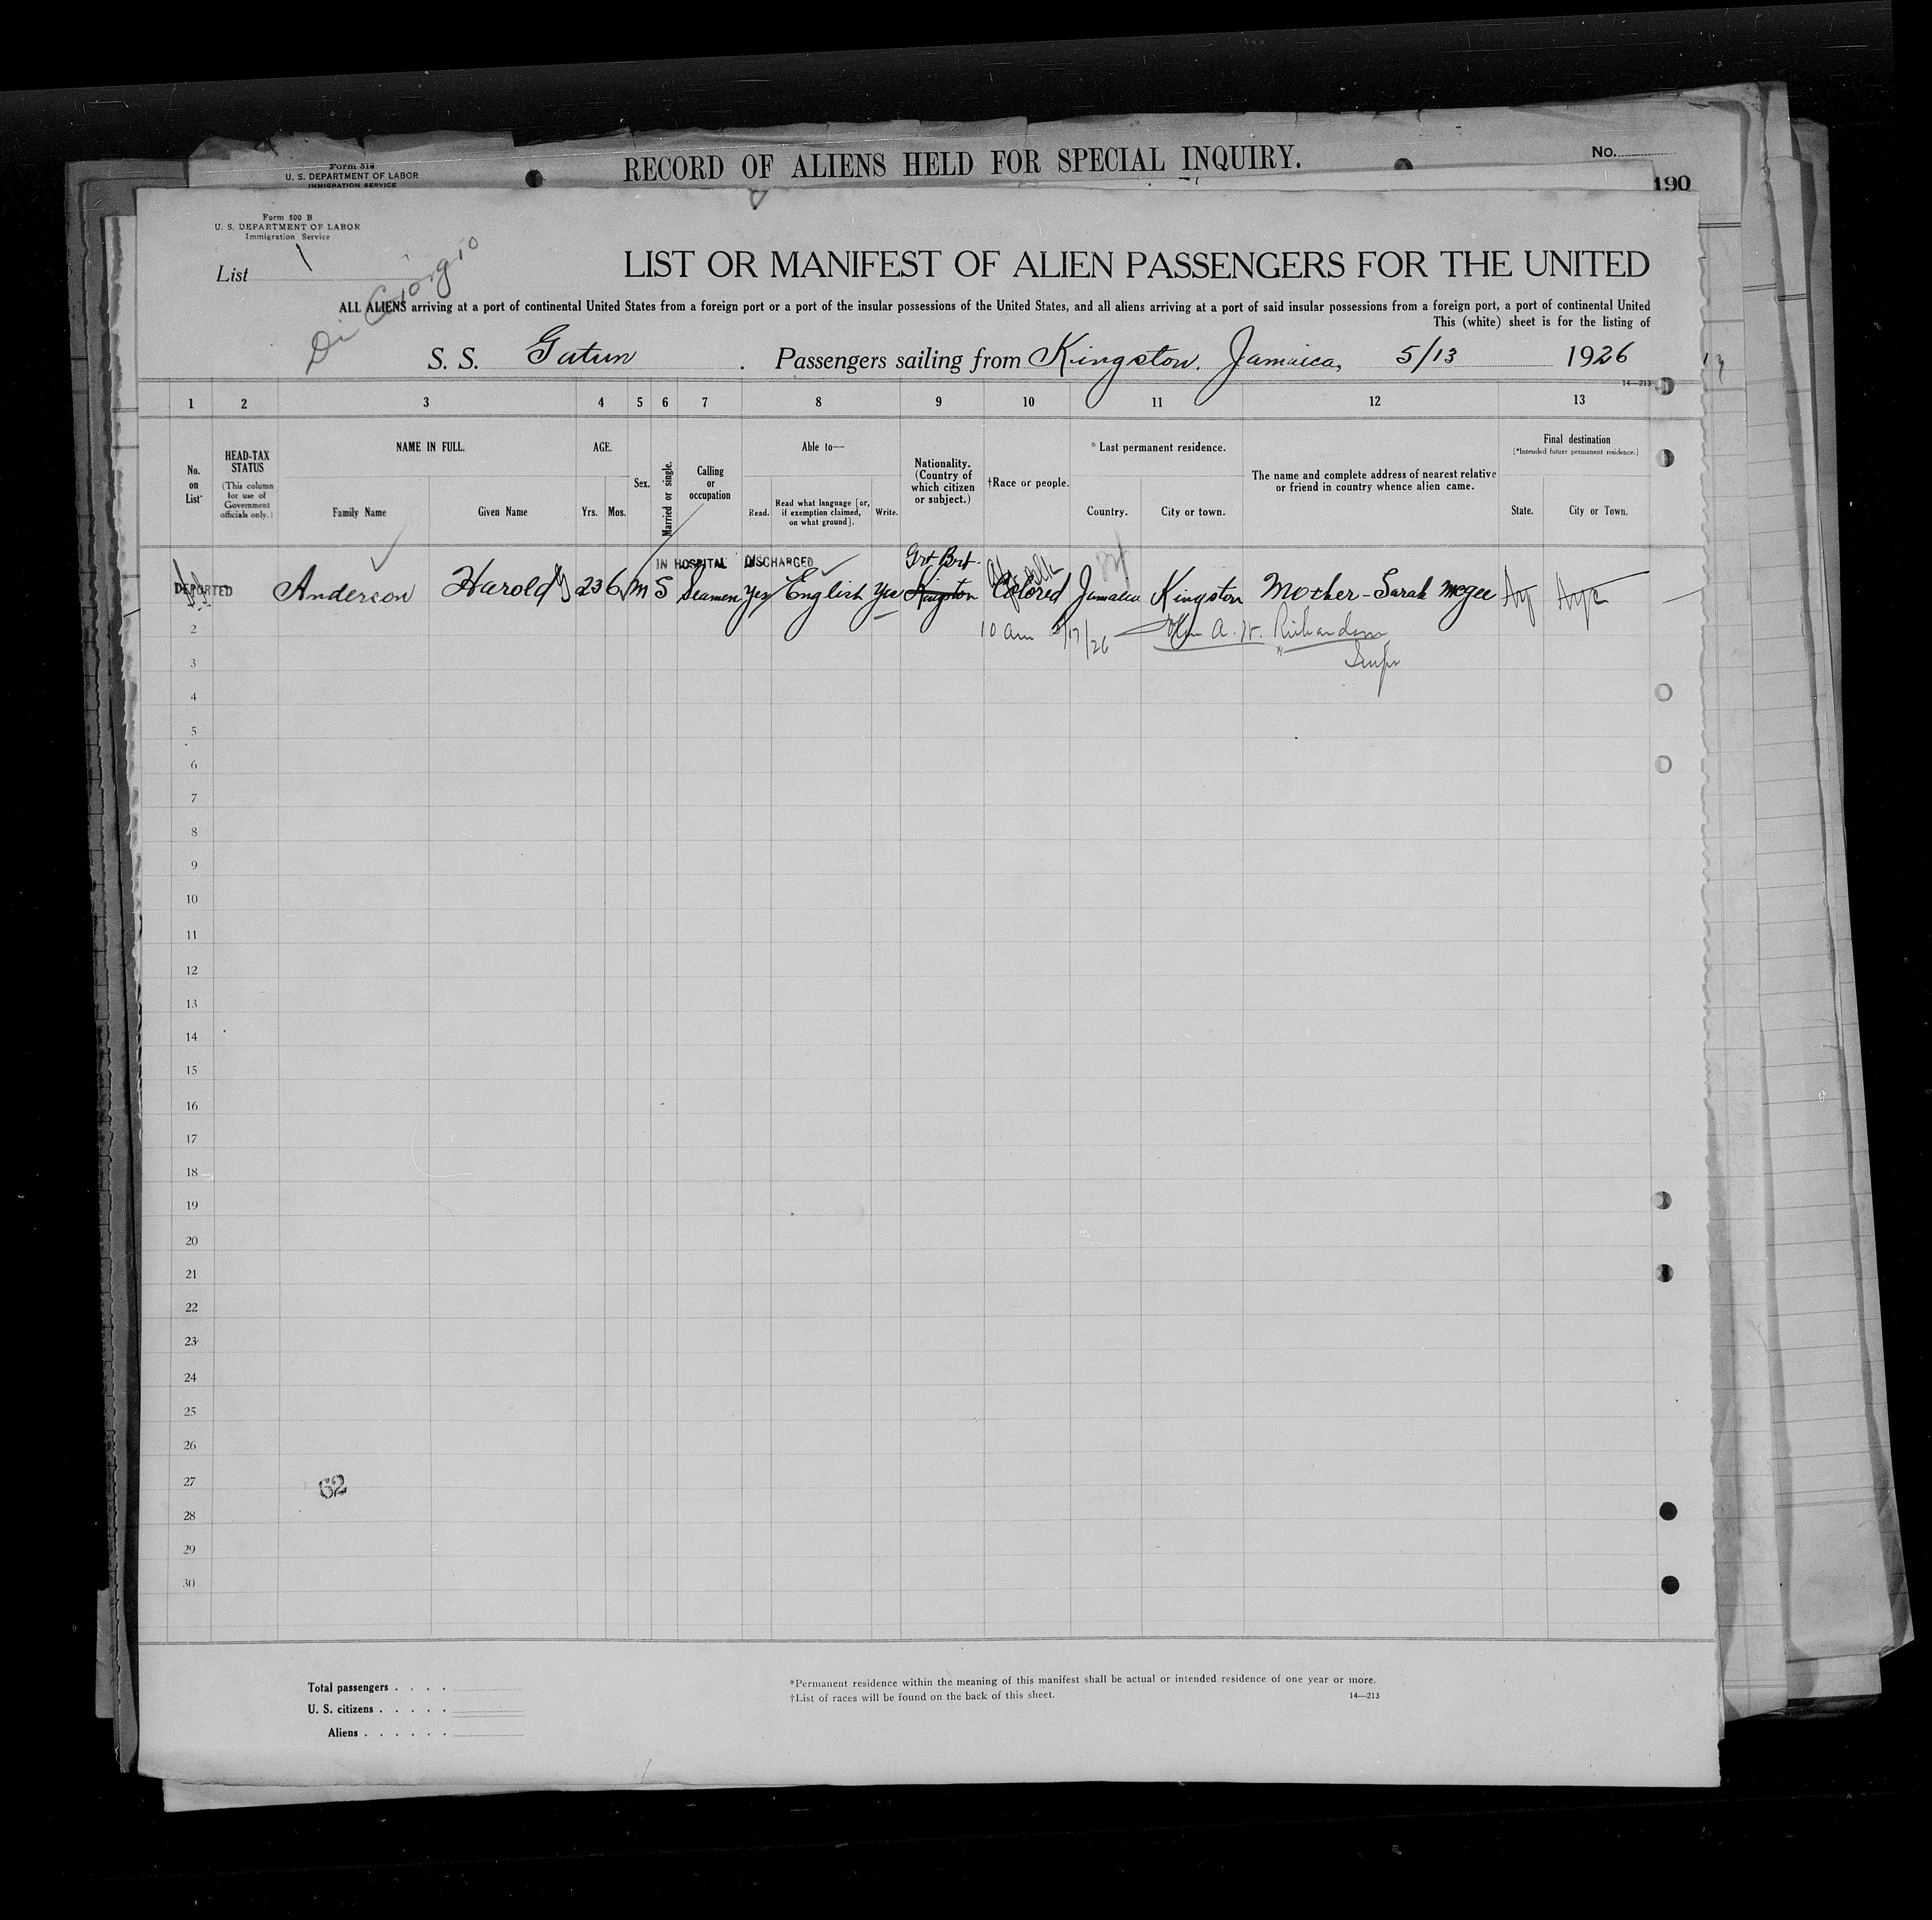 Form 518
U. S. DEPARTMENT OF LABOR
IMMIGRATION SERVICE
RECORD OF ALIENS HELD FOR SPECIAL INQUIRY.
No.
190
Form 500 B
U. S. DEPARTMENT OF LABOR
Immigration Service
List 1
Di Giorgio
LIST OR MANIFEST OF ALIEN PASSENGERS FOR THE UNITED
ALL ALIENS arriving at a port of continental United States from a foreign port or a port of the insular possessions of the United States, and all aliens arriving at a port of said insular possessions from a foreign port, a port of continental United
This (white) sheet is for the listing of
S. S. Gatun . Passengers sailing from Kingston, Jamaica, 5/13 1926
14—213
1 2 3 4 5 6 7 8 9 10 11 12 13
No. on List
HEAD-TAX STATUS
(This column for use of Government officials only.)
NAME IN FULL.
Family Name Given Name
AGE.
Yrs. Mos.
Sex.
Married or single.
Calling or occupation
Able to—
Read. Read what language [or, if exemption claimed, on what ground]. Write.
Nationality. (Country of which citizen or subject.)
†Race or people.
*Last permanent residence.
Country. City or town.
The name and complete address of nearest relative or friend in country whence alien came.
Final destination
[*Intended future permanent residence.]
State. City or Town.
IN HOSPITAL DISCHARGED Grt Brt.
DEPORTED Anderson Harold 23 6 M S Seamen yes English yes Kingston Colored Jamaica Kingston Mother - Sarah McGee
2 10 am 5/17/26 A. W. Richardson
3 Supr
4
5
6
7
8
9
10
11
12
13
14
15
16
17
18
19
20
21
22
23
24
25
26
27
62
28
29
30
Total passengers . . . .
U. S. citizens . . . . .
Aliens . . . . . .
*Permanent residence within the meaning of this manifest shall be actual or intended residence of one year or more.
†List of races will be found on the back of this sheet.
14—213